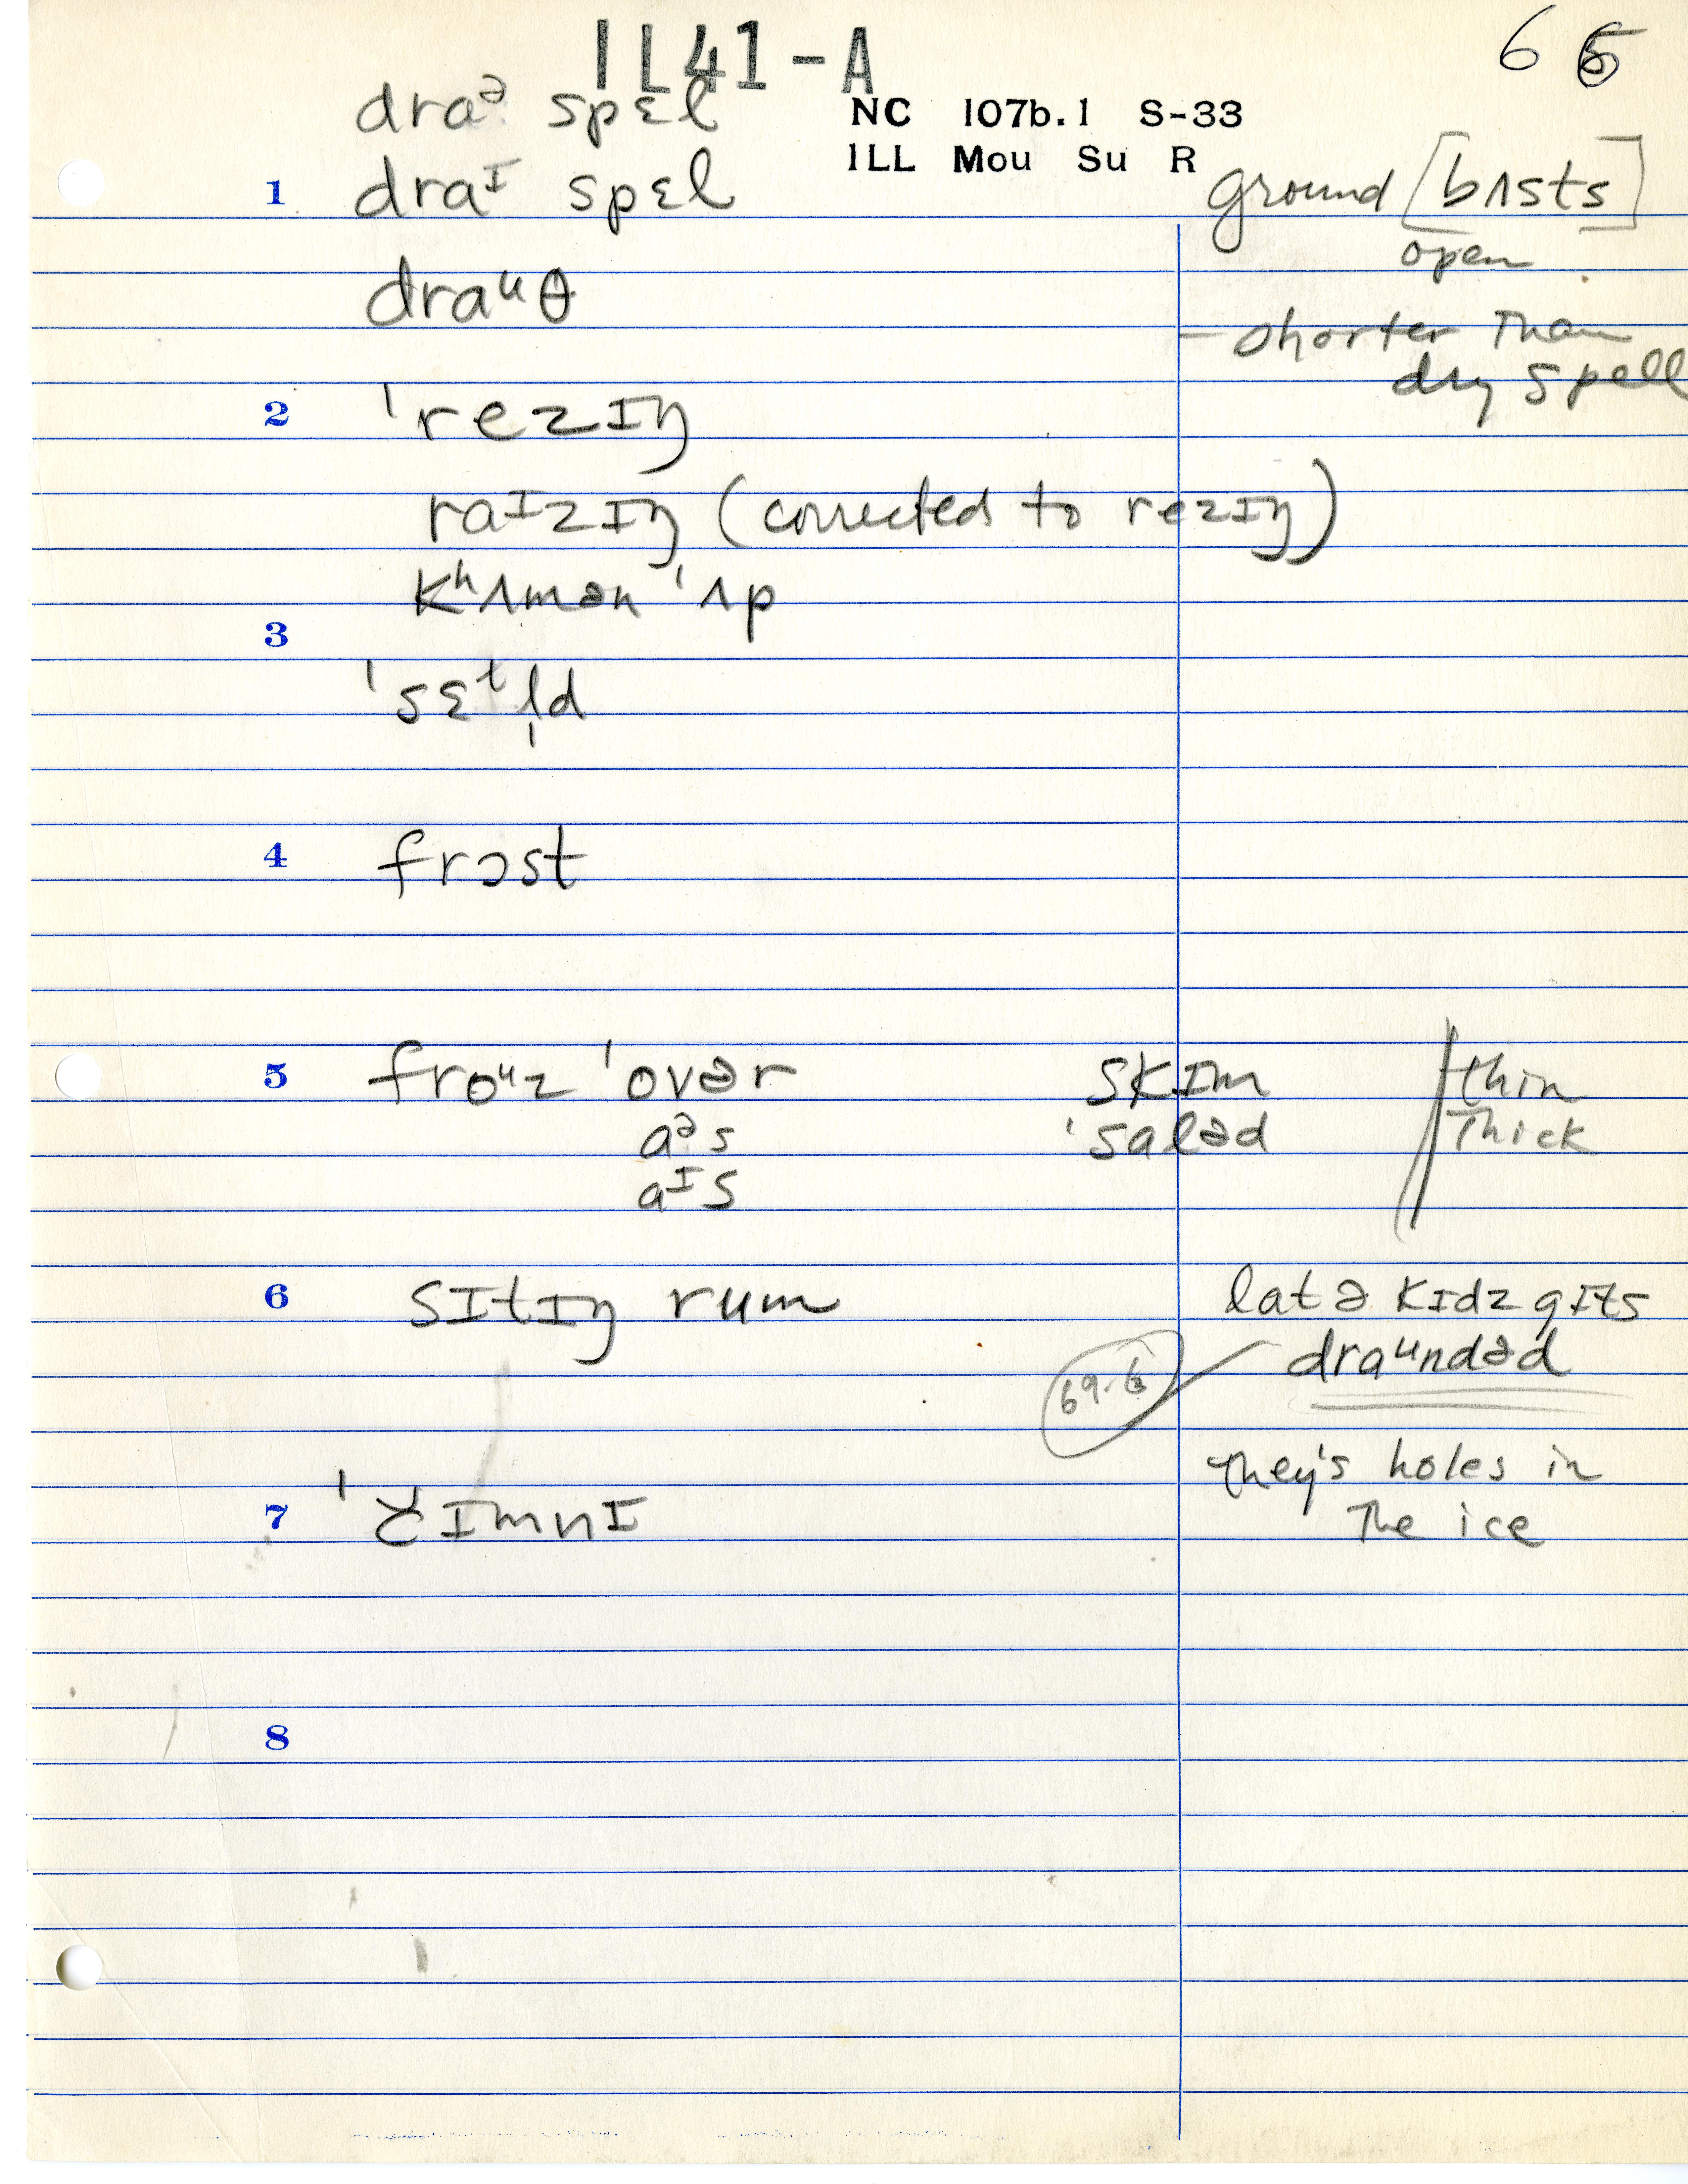 1L41-A
6 6
draᵊ spɛl
NC 107b.1 S-33
1LL Mou Su R
1 draᶦ spɛl
ground [bʌsts]
open
draᵘθ
– shorter than
dry spell
2 ˈrezɪŋ
raɪzɪŋ (corrected to rezɪŋ)
kʰʌmən ˈʌp
3
ˈsɛᵗl̩d
4 frɔst
5 froᵘz ˈovər skɪm thin
aᵊs ˈsaləd Thick
aᶦs
6 sɪtɪŋ rum
lat ə kɪdz gɪts
draᵘndəd
69.6
They's holes in
The ice
7 ˈčɪmnɪ
8